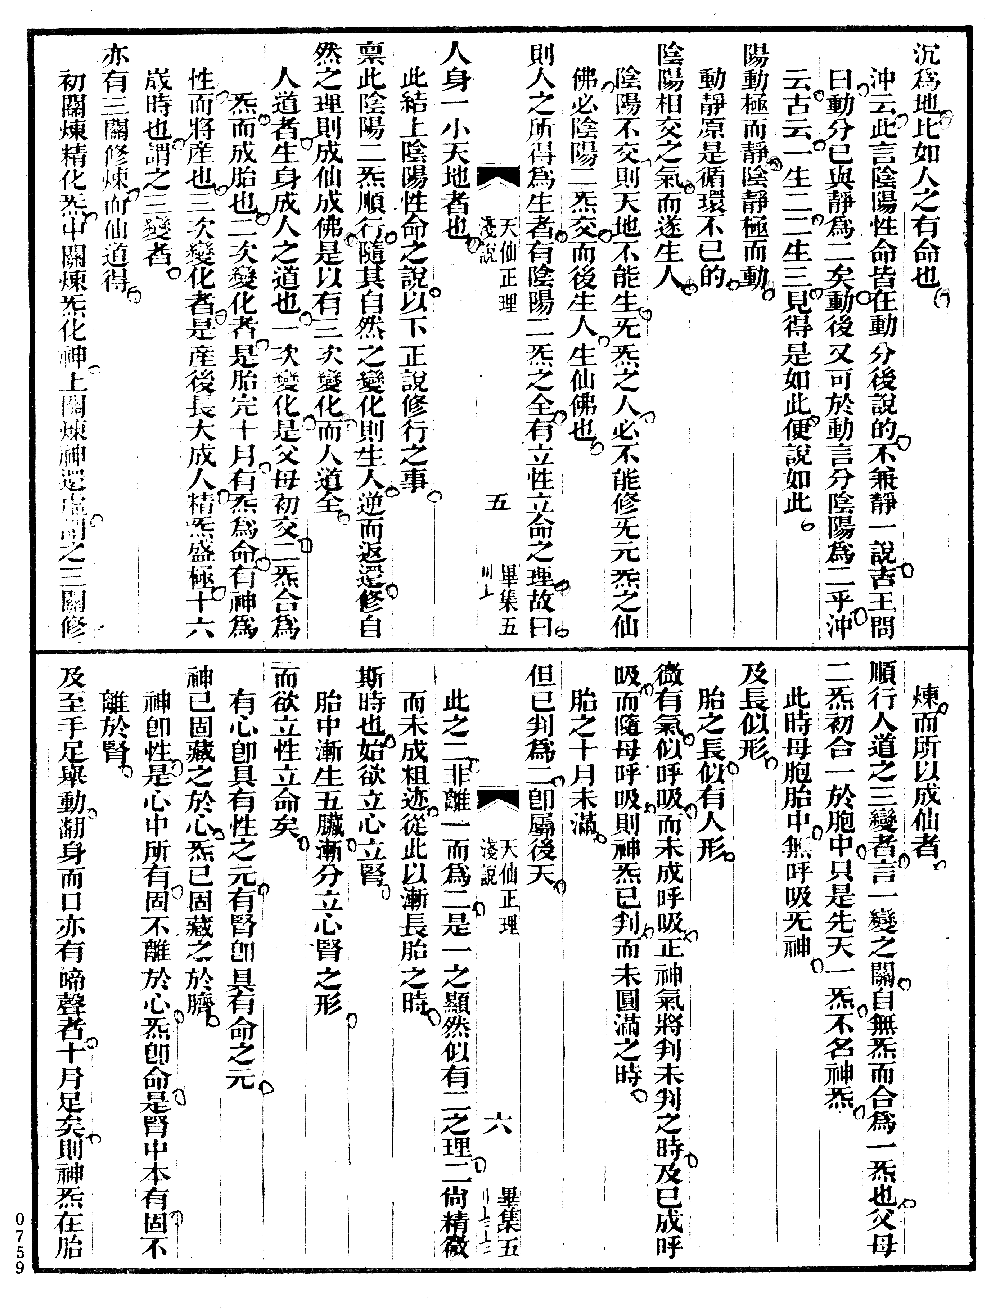 沉爲地比如人之有命也
沖云此言陰陽性命皆在動分後說的不兼靜一說吉王問
曰動分已與靜爲二矣動後又可於動言分陰陽爲二乎沖
云古云一生二二生三見得是如此便說如此
陽動極而靜陰靜極而動
動靜原是循環不已的
陰陽相交之氣而遂生人
陰陽不交則天地不能生炁炁之人必不能修炁元炁之仙
佛必陰陽二炁交而後生人生仙佛也
則人之所得爲生者有陰陽二炁之全有立性立命之理故曰
天仙正理
淺說
五
畢集五
人身一小天地者也
此結上陰陽性命之說以下正說修行之事
稟此陰陽二炁順行隨其自然之變化則生人逆而返還修自
然之理則成仙成佛是以有三次變化而人道全
人道者生身成人之道也一次變化是父母初交二炁合爲
炁而成胎也二次變化者是胎完十月有炁爲命有神爲
性而將產也三次變化者是產後長大成人精炁盛極十六
歲時也謂之三變者
亦有三關修煉而仙道得
初關煉精化炁中關煉炁化神上關煉神還虛謂之三關修
煉而所以成仙者
順行人道之三變者言一變之關自無炁而合爲一炁也父母
二炁初合一於胞中只是先天一炁不名神炁
此時母胞胎中無呼吸无神
及長似形
胎之長似有人形
微有氣似呼吸而未成呼吸正神氣將判未判之時及已成呼
吸而隨母呼吸則神炁已判而未圓滿之時
胎之十月未滿
但已判爲二卽屬後天
天仙正理
淺說
六
畢集五
此之二非離一而爲二是一之顯然似有二之理二尙精微
而未成粗迹從此以漸長胎之時
斯時也始欲立心立腎
胎中漸生五臟漸分立心腎之形
而欲立性立命矣
有心卽具有性之元有腎卽具有命之元
神已固藏之於心炁已固藏之於臍
神卽性是心中所有固不離於心炁卽命是腎中本有固不
離於腎
及至手足舉動翻身而口亦有啼聲者十月足矣則神炁在胎
0759